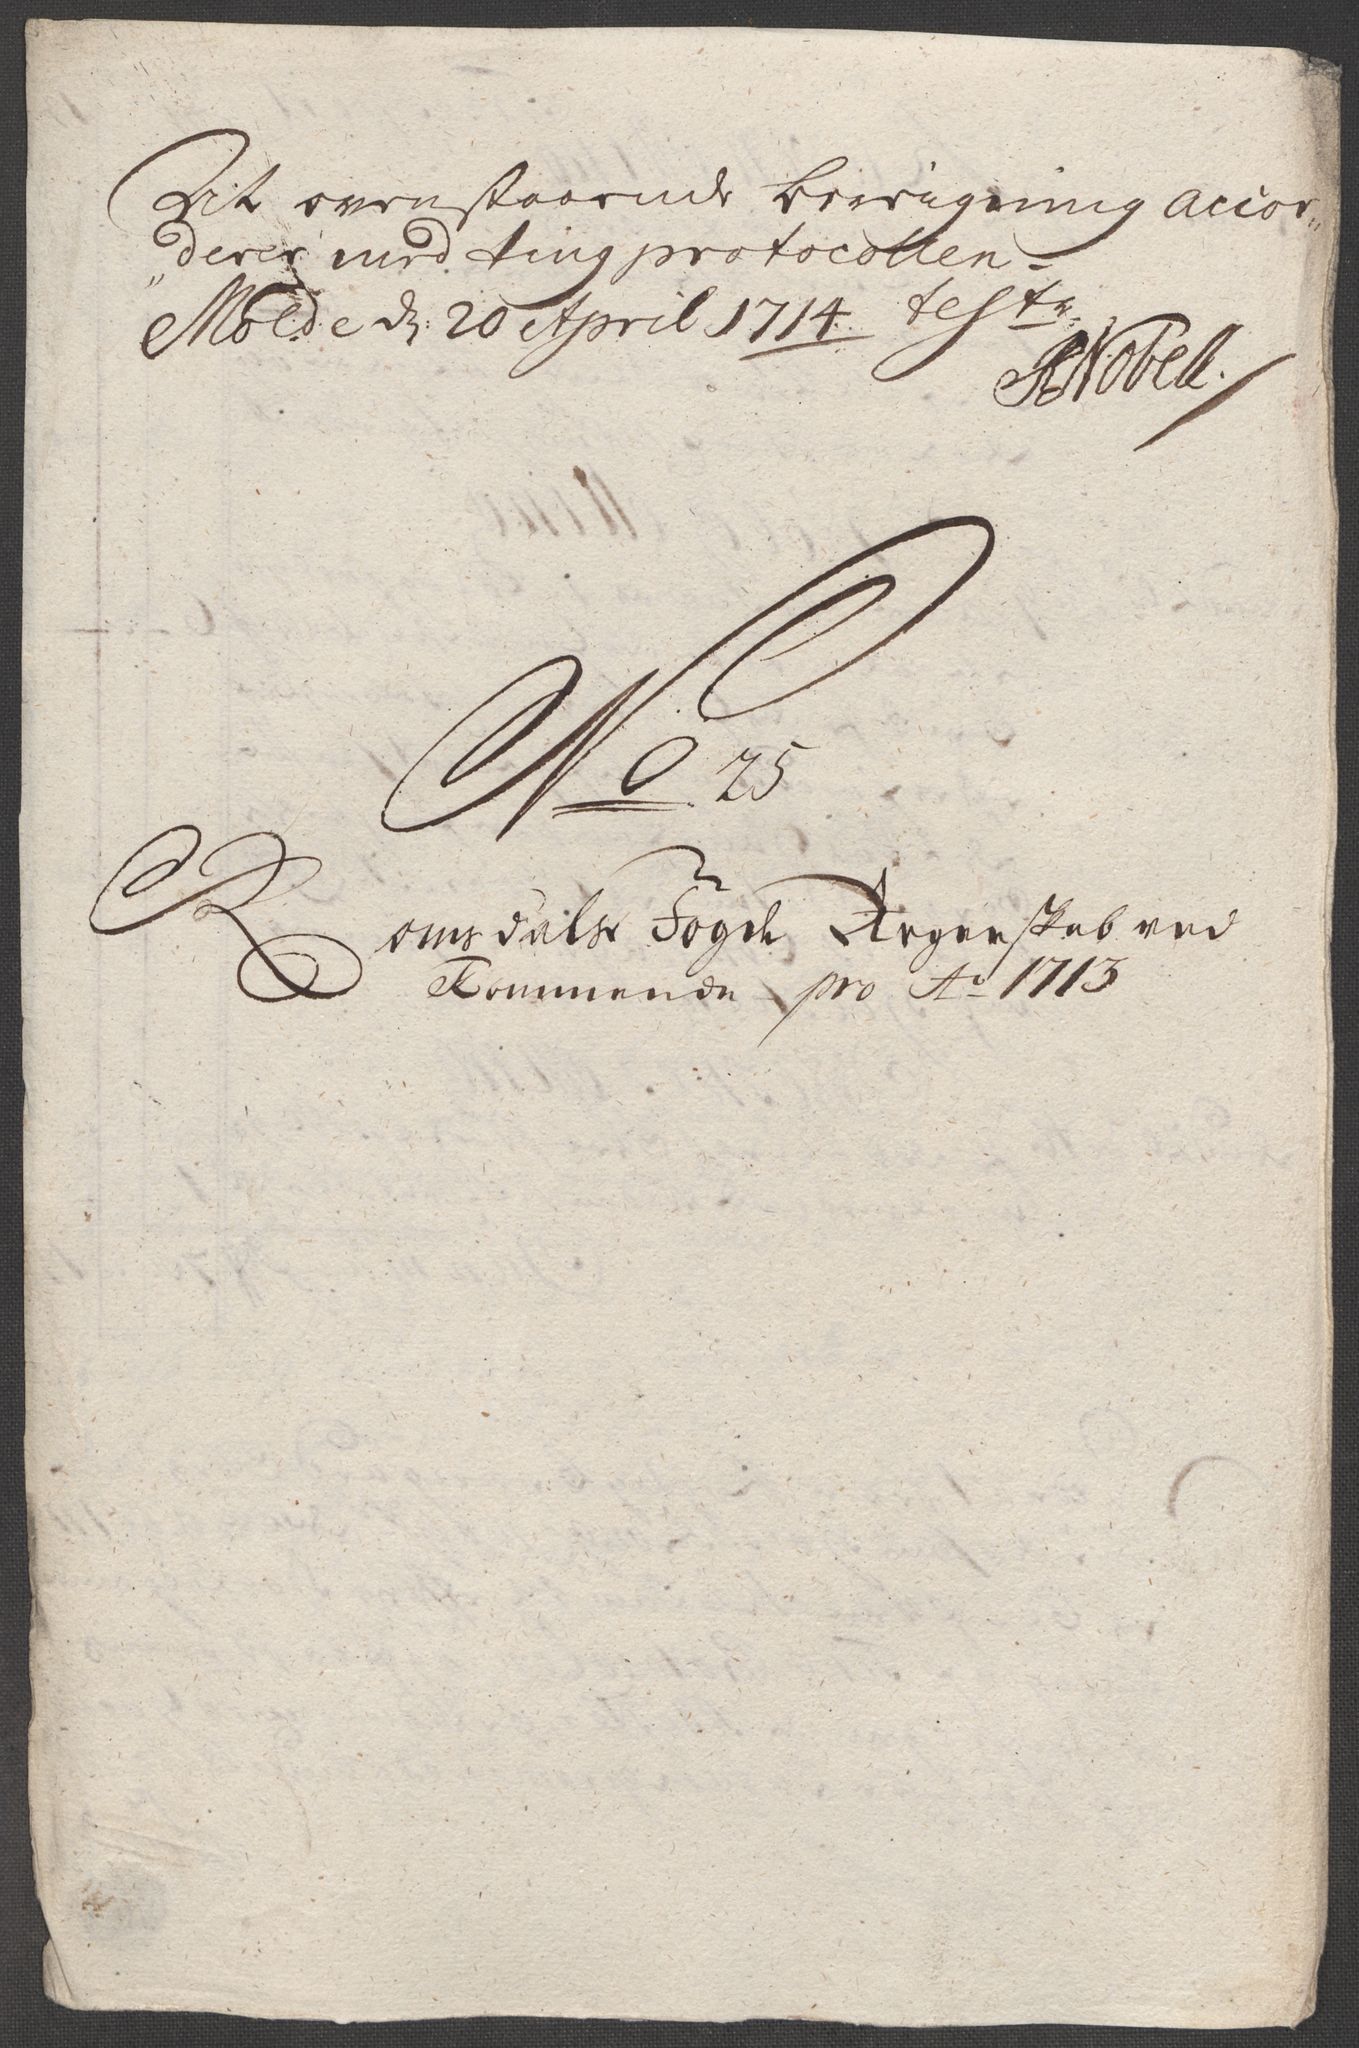 At ovenstaaende beregning accor„
„derer med tingprotocollen.
Molde d: 20 April 1714 teste
Nobell.
No 25
Romsdals Fogde Regenskab ved
Kommende pro Ao 1713